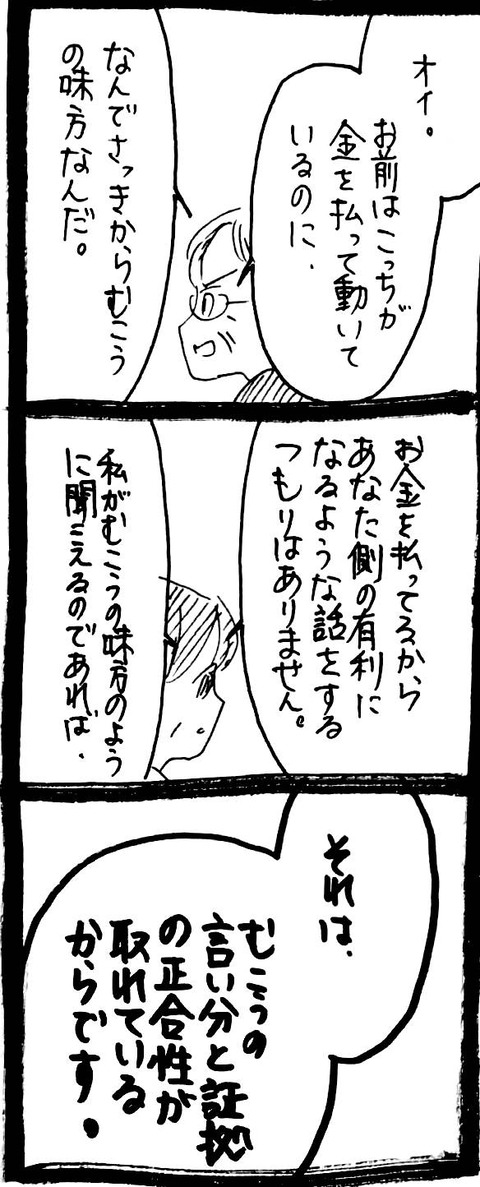 オイ。
お前はこっちが
金を払って動いて
いるのに、
なんでさっきからむこう
の味方なんだ。
お金を払ってるから
あなた側の有利に
なるような話をする
つもりはありません。
私がむこうの味方のよう
に聞こえるのであれば、
それは、
むこうの
言い分と証拠
の正合性が
取れている
からです。